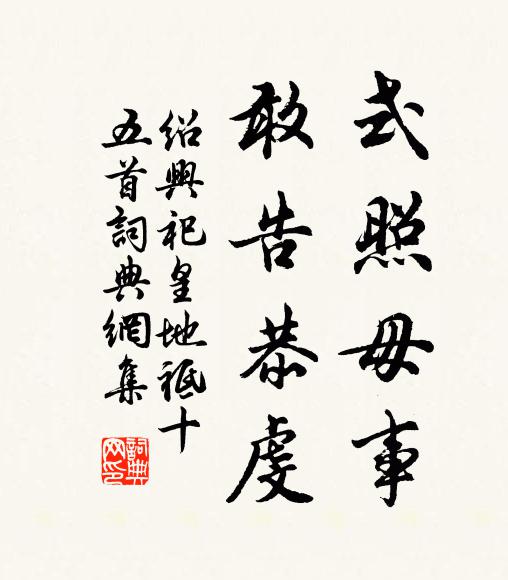 式照毋事
敢告恭虔
紹興祀皇地祗十
五首詞典網集
詞典
网印